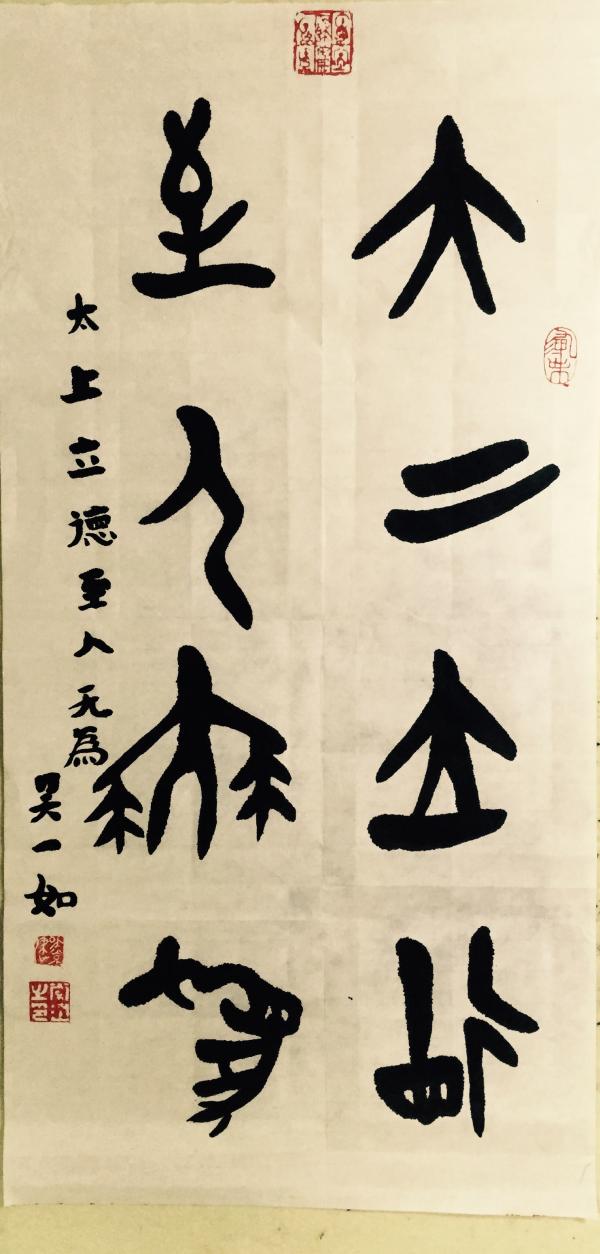 大二立德
至人無為
太上立德至人无為
吴一如